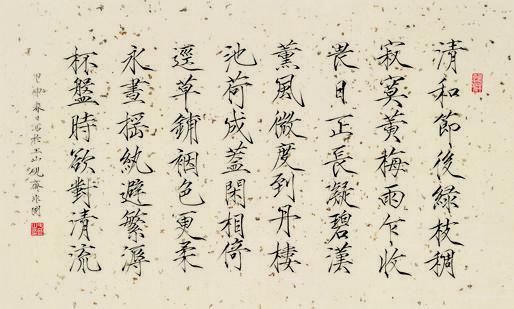 清和節後綠枝稠
寂寞黃梅雨乍收
畏日正長凝碧漢
薰風微度到丹樓
池荷成蓋閑相倚
逕草鋪裀色更柔
永晝搖紈避繁溽
杯盤時欲對清流
甲申春日